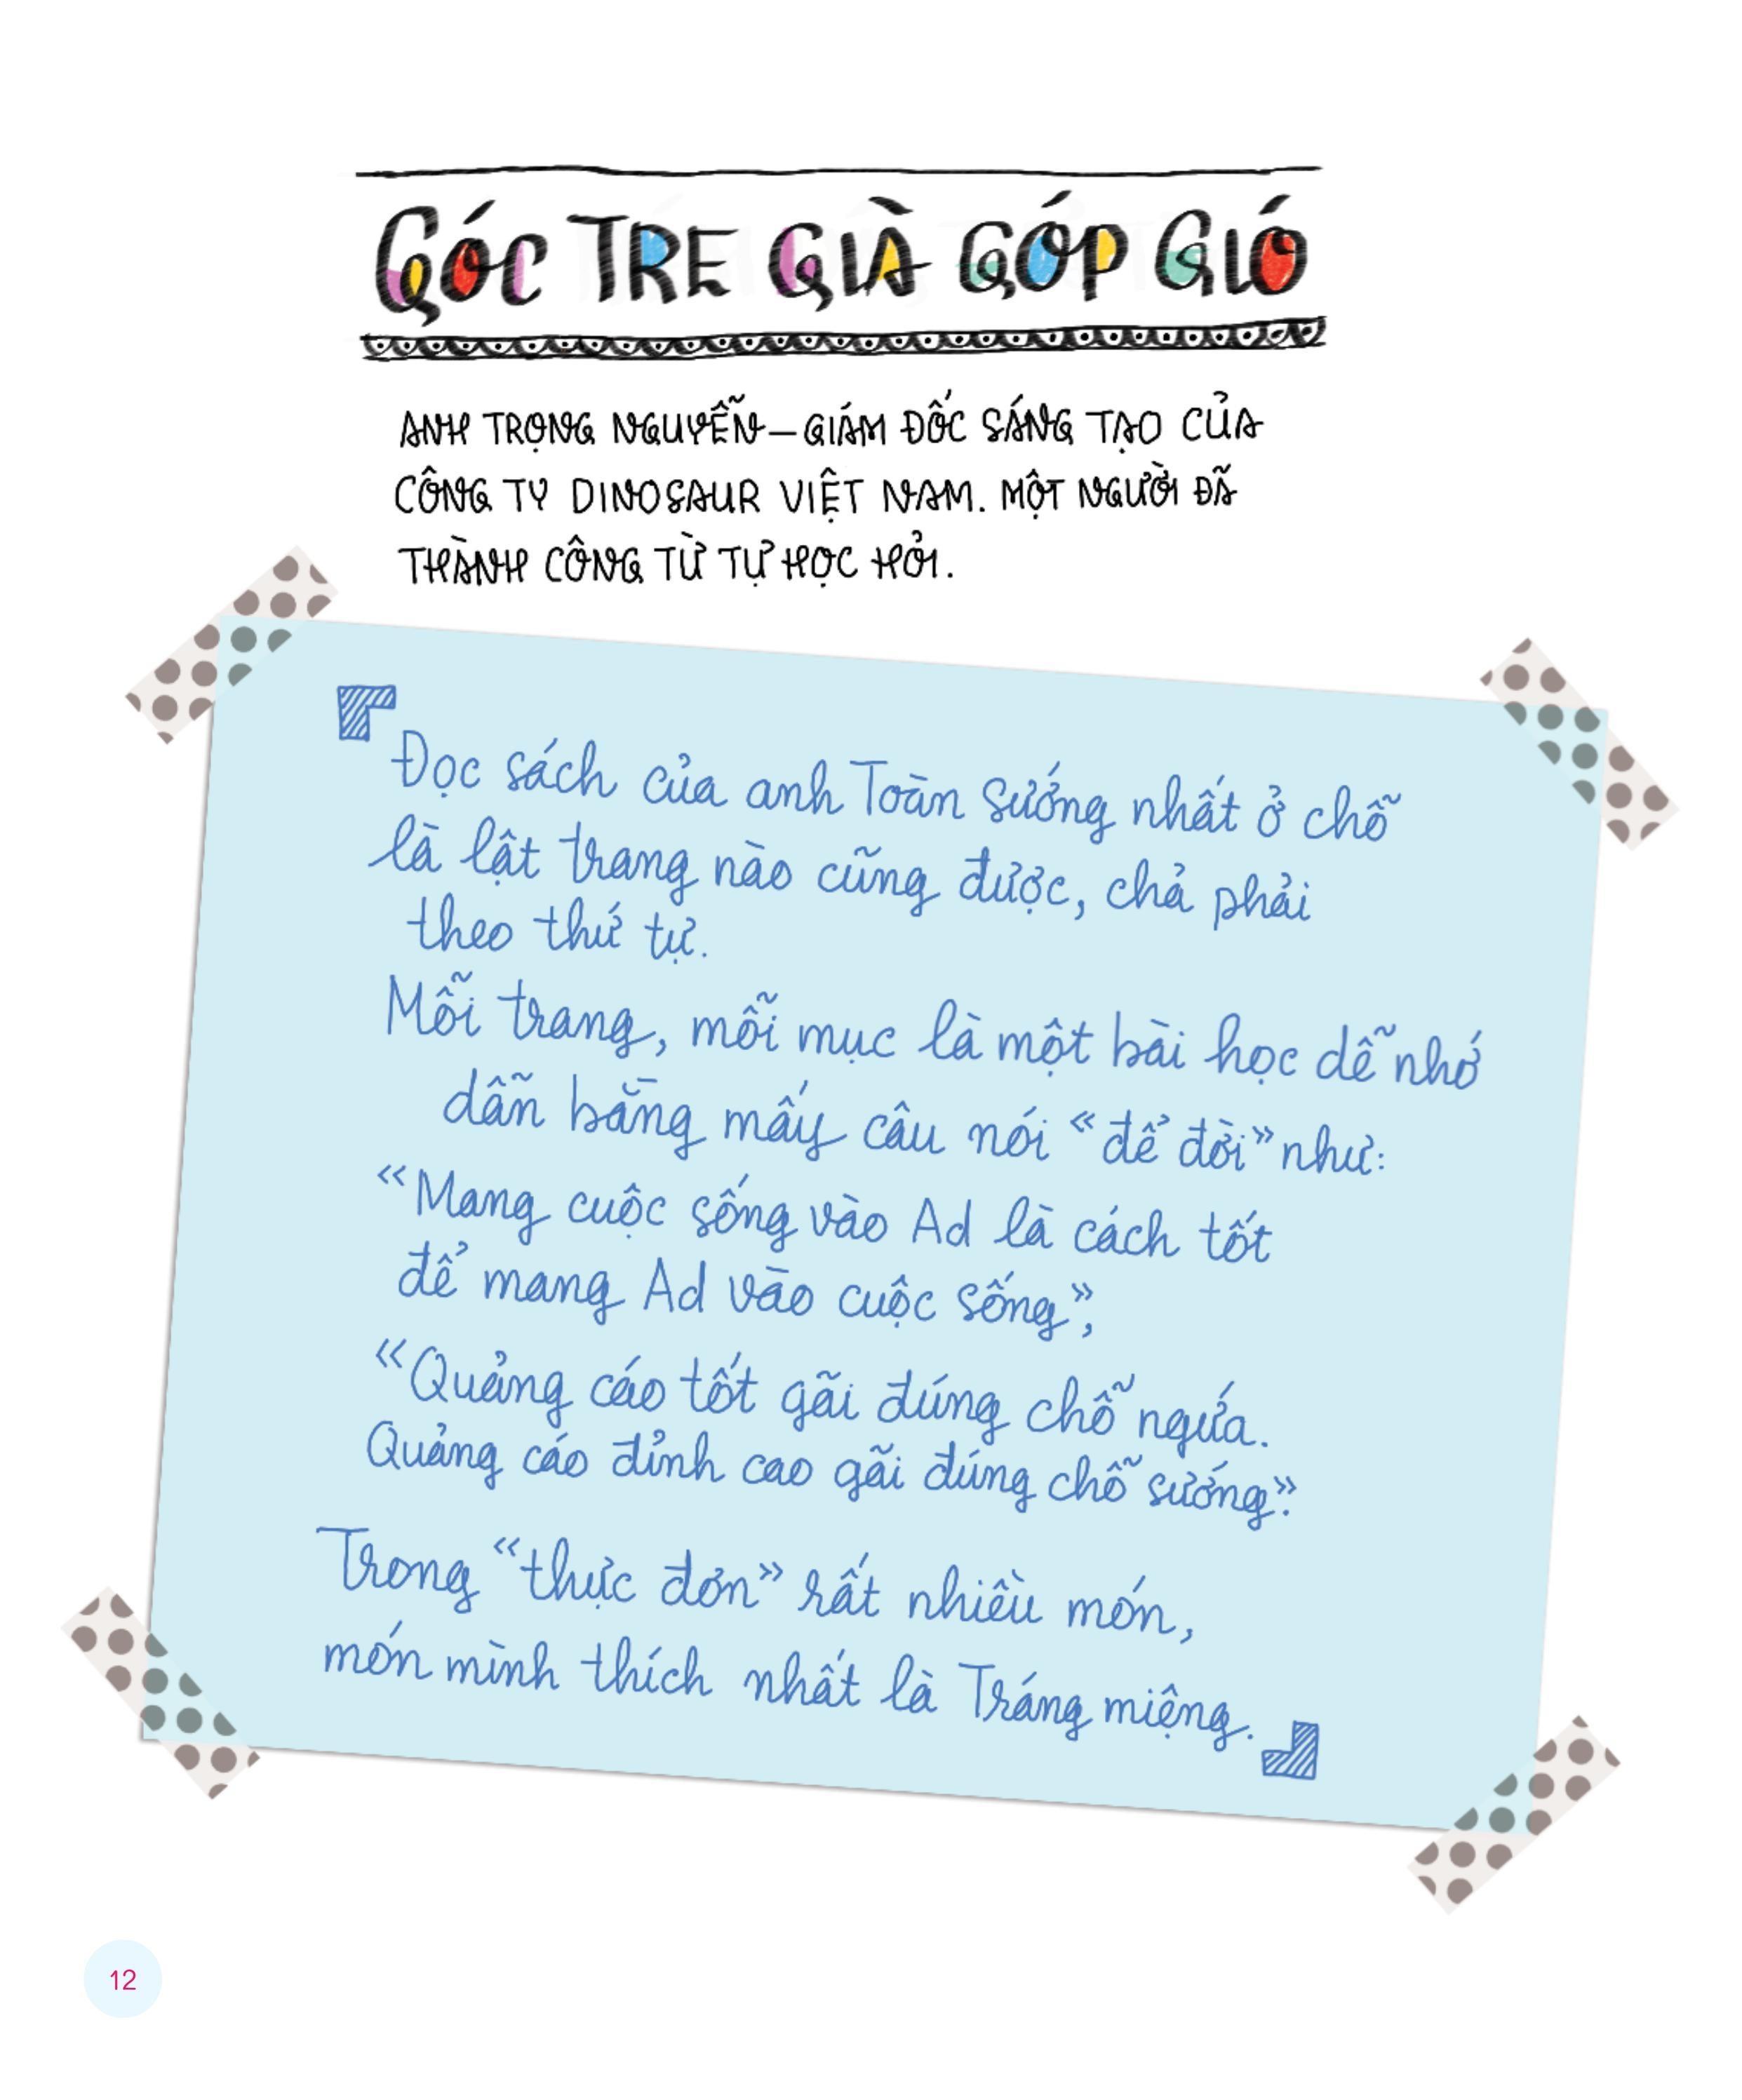 GÓC TRE GIÀ GÓP GIÓ
ANH TRỌNG NGUYỄN – GIÁM ĐỐC SÁNG TẠO CỦA
CÔNG TY DINOSAUR VIỆT NAM. MỘT NGƯỜI ĐÃ
THÀNH CÔNG TỪ TỰ HỌC HỎI.
Đọc sách của anh Toàn sướng nhất ở chỗ
là lật trang nào cũng được, chả phải
theo thứ tự.
Mỗi trang, mỗi mục là một bài học dễ nhớ
dẫn bằng mấy câu nói “để đời” như:
“Mang cuộc sống vào Ad là cách tốt
để mang Ad vào cuộc sống”,
“Quảng cáo tốt gãi đúng chỗ ngứa.
Quảng cáo đỉnh cao gãi đúng chỗ sướng”.
Trong “thực đơn” rất nhiều món,
món mình thích nhất là Tráng miệng.
12